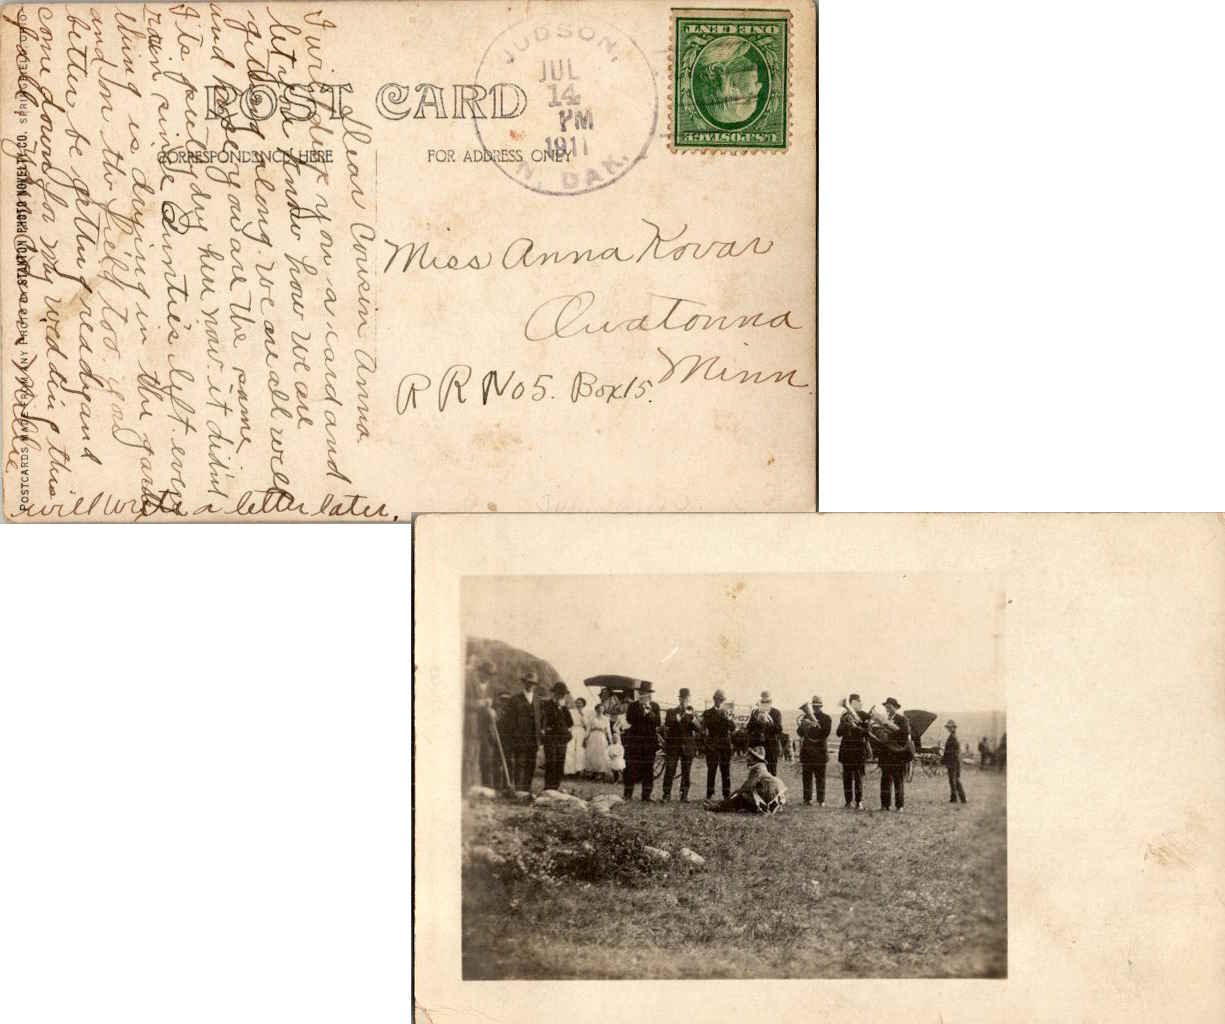 POST CARD
CORRESPONDENCE HERE
FOR ADDRESS ONLY
JUDSON,
JUL
14
PM
1911
N. DAK.
U.S.POSTAGE
ONE CENT
Miss Anna Kovar
Owatonna
Minn
R R No 5. Box 15.
Dear Cousin Anna
I will drop you a card and
let you know how we are
getting along. we are all well
and hope you are the same
Its feely dry here now. it didn't
rain since Aunties left. every
thing is drying in the garden
and on the field too. you
better be getting ready and
come down for my wedding this
fall.
Willie
will write a letter later.
POSTCARDS MADE FROM ANY PHOTO BY STANTON PHOTO NOVELTY CO. SPRINGFIELD, OHIO